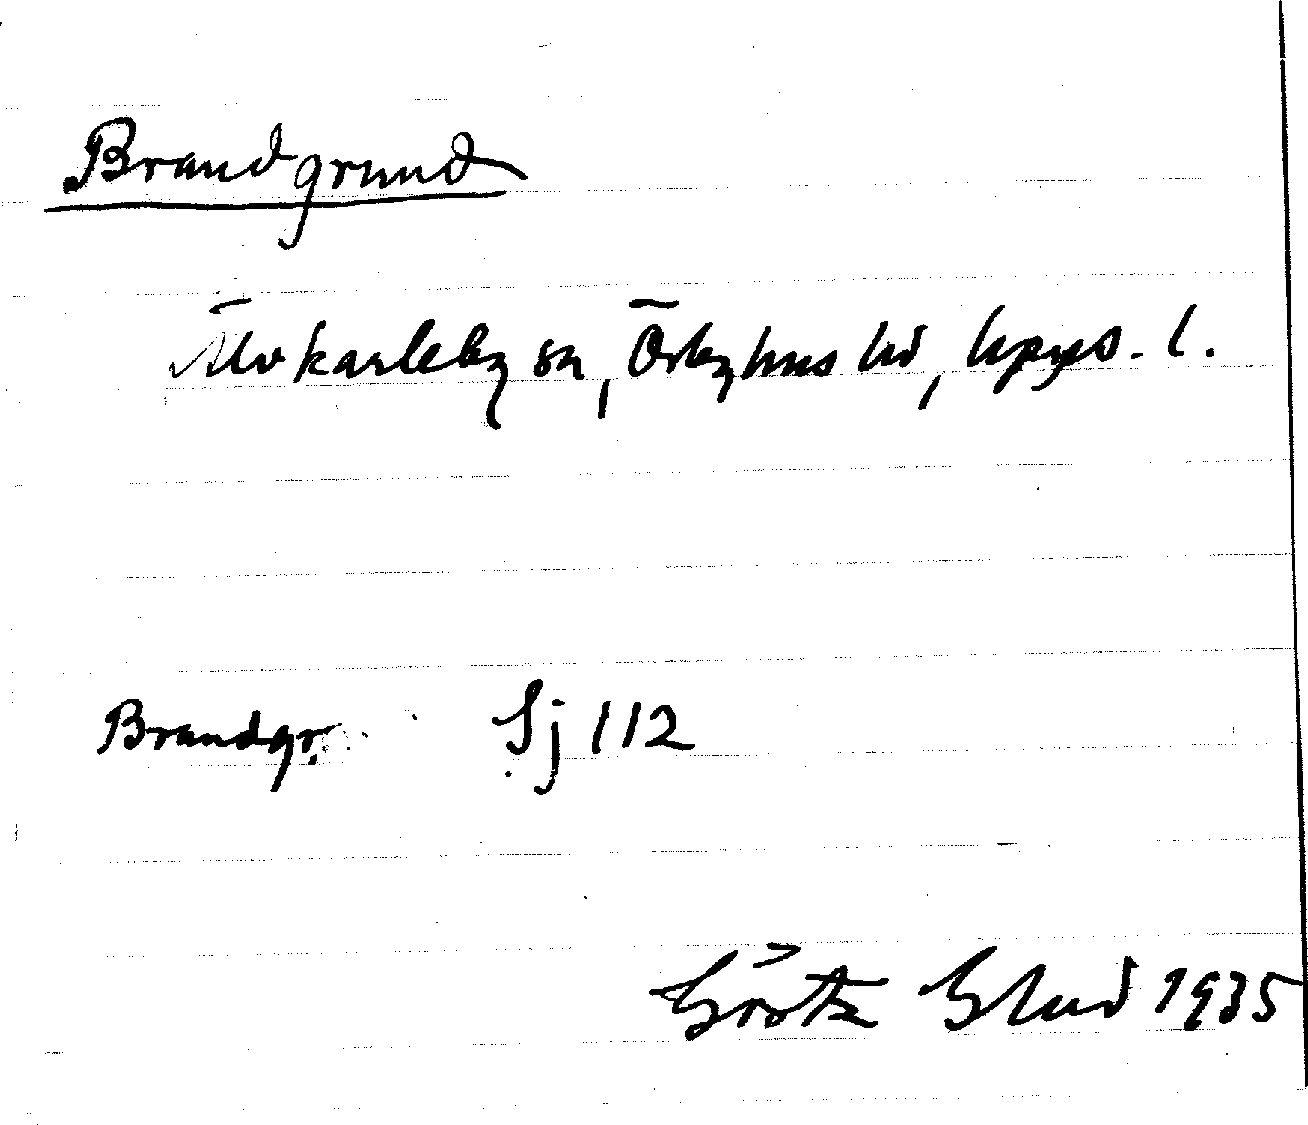 Brandgrund
Älvkarleby sn, Örbyhus hd, Upps. l.
Brandgr. Sj 112
Gösta 1935